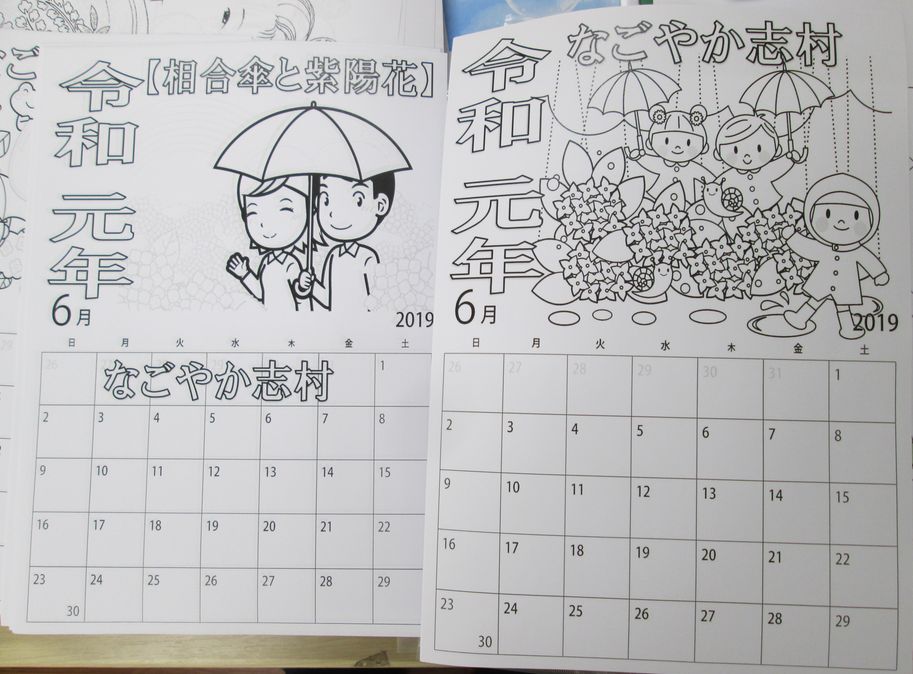 令和元年
【相合傘と紫陽花】
6月
2019
日 月 火 水 木 金 土
26
なごやか志村
1
2 3 4 5 6 7 8
9 10 11 12 13 14 15
16 17 18 19 20 21 22
23 24 25 26 27 28 29
30
なごやか志村
令和元年
6月
2019
日 月 火 水 木 金 土
26 27 28 29 30 31 1
2 3 4 5 6 7 8
9 10 11 12 13 14 15
16 17 18 19 20 21 22
23 24 25 26 27 28 29
30